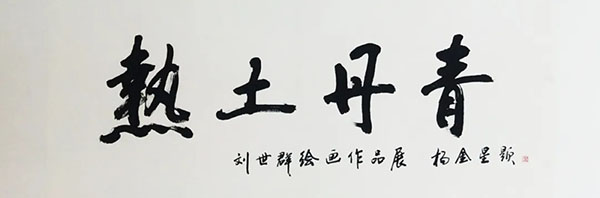 熱土丹青
刘世群绘画作品展 杨金星题